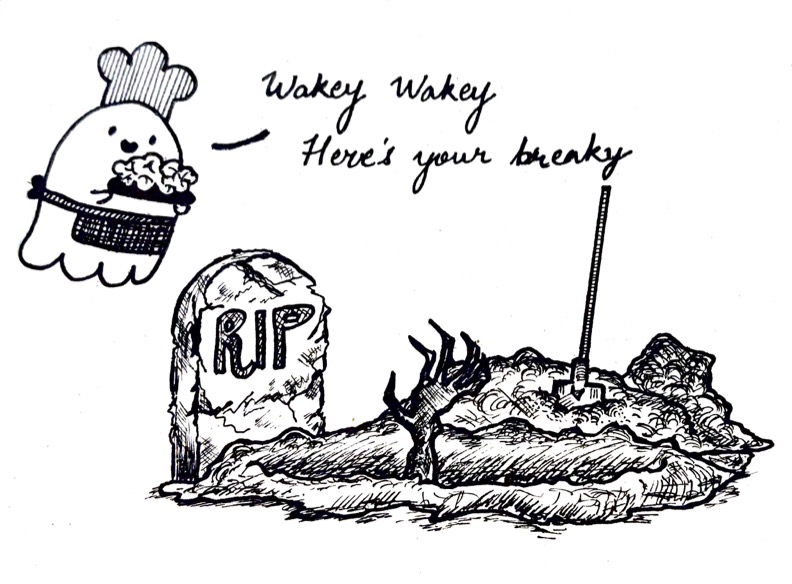 Wakey Wakey
Here's your breaky
RIP